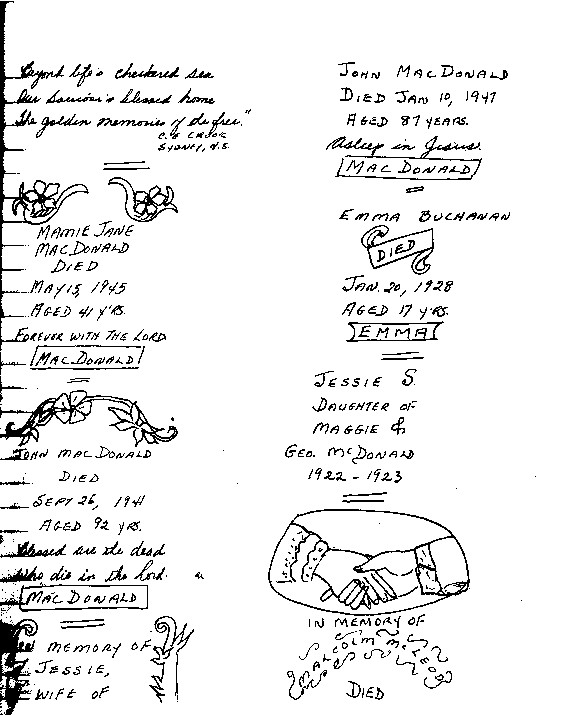 Beyond life's checkered sea
Our Saviour's blessed home
The golden memories of the free."
C. E. CROOK
SYDNEY, N.S.
MAMIE JANE
MACDONALD
DIED
MAY 15, 1945
AGED 41 Y'RS.
FOREVER WITH THE LORD
MACDONALD
JOHN MACDONALD
DIED
SEPT 26, 1941
AGED 92 YRS.
Blessed are the dead
Who die in the Lord.
MACDONALD
MEMORY OF
JESSIE,
WIFE OF
JOHN MACDONALD
DIED JAN 10, 1947
AGED 87 YEARS.
Asleep in Jesus.
MACDONALD
EMMA BUCHANAN
DIED
JAN. 20, 1928
AGED 17 Y'RS.
EMMA
JESSIE S.
DAUGHTER OF
MAGGIE &
GEO. McDONALD
1922 - 1923
IN MEMORY OF
MALCOLM McLEOD
DIED